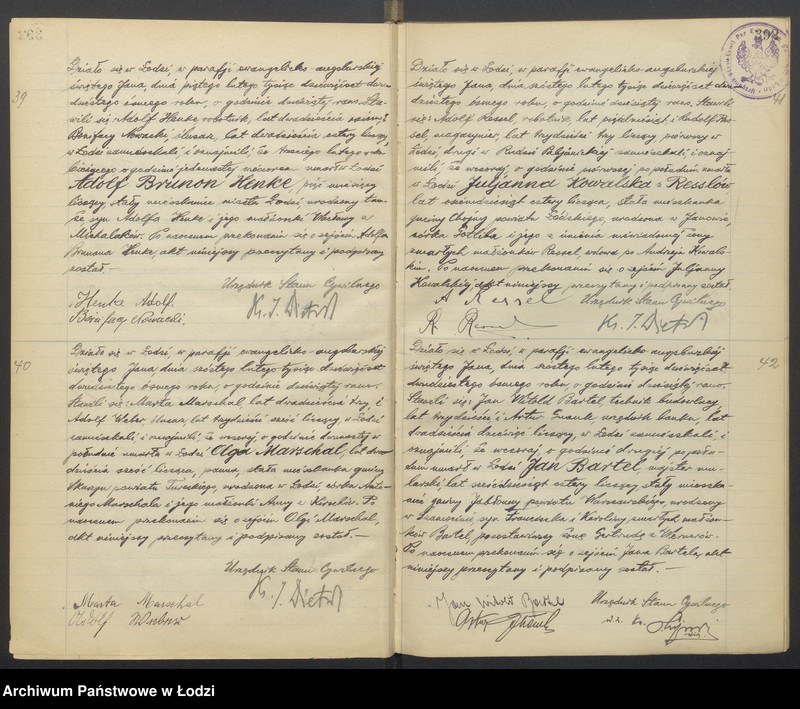 39
Działo się w Łodzi, w parafji ewangelicko-augsburskiej
świętego Jana, dnia piątego lutego tysiąc dziewięćset dwu-
dziestego ósmego roku, o godzinie dziesiątej rano. Sta-
wili się: Adolf Henke robotnik, lat dwadzieścia i
Bonifacy Nowacki, ślusarz, lat dwadzieścia cztery liczący,
w Łodzi zamieszkali, i oznajmili, że trzeciego lutego roku
bieżącego o godzinie jedenastej wieczorem umarł w Łodzi
Adolf Brunon Henke, pięć miesięcy
liczący, stały mieszkaniec miasta Łodzi urodzony tam-
że syn Adolfa Henke i jego małżonki z
Michalaków. Po naocznem przekonaniu się o zejściu Adolfa
Brunona Henke, akt niniejszy przeczytany i podpisany
został. —
Urzędnik Stanu Cywilnego
Henke Adolf.
Bonifacy Nowacki.
Ks. J. Dietrich
40
Działo się w Łodzi, w parafji ewangelicko-augsburskiej
świętego Jana, dnia szóstego lutego tysiąc dziewięćset
dwudziestego ósmego roku, o godzinie dziesiątej rano.
Stawili się: Marta Marschal, lat dwadzieścia trzy, i
Adolf Weber ślusarz, lat trzydzieści sześć liczący, w Łodzi
zamieszkali i oznajmili, że wczoraj o godzinie dwunastej w
południe umarła w Łodzi Olga Marschal, lat dwa-
dzieścia sześć licząca, panna, stała mieszkanka gminy
powiatu Tureckiego, urodzona w Łodzi, córka Anto-
niego Marschala i jego małżonki Anny z Po
naocznem przekonaniu się o zejściu Olgi Marschal,
akt niniejszy przeczytany i podpisany został. —
Urzędnik Stanu Cywilnego
Ks. J. Dietrich
Marta Marschal
Adolf Weber
41
Działo się w Łodzi, w parafji ewangelicko-augsburskiej
świętego Jana, dnia szóstego lutego tysiąc dziewięćset dwu-
dziestego ósmego roku, o godzinie dziesiątej rano. Stawili
się: Adolf Kessel, robotnik, lat pięćdziesiąt i Rudolf Kes-
sel, magazynier, lat trzydzieści trzy liczący, pierwszy w
Łodzi, drugi w Rudzie Pabjanickiej zamieszkali, i oznaj-
mili, że wczoraj, o godzinie pierwszej po południu umarła
w Łodzi Juljanna Kowalska z Kesslów
lat osiemdziesiąt cztery licząca, stała mieszkanka
gminy Chojny powiatu Łódzkiego, urodzona w Janowie,
córka Gotliba i jego z imienia niewiadomej żony
zmarłych małżonków Kessel, wdowa po Andrzeju Kowals-
kim. Po naocznem przekonaniu się o zejściu Juljanny
Kowalskiej, akt niniejszy przeczytany i podpisany został.
A Kessel
Urzędnik Stanu Cywilnego
R. Kessel
Ks. J. Dietrich
42
Działo się w Łodzi, w parafji ewangelicko-augsburskiej
świętego Jana, dnia szóstego lutego tysiąc dziewięćset
dwudziestego ósmego roku, o godzinie dziesiątej rano.
Stawili się: Jan Witold Bartel technik budowlany
lat trzydzieści i Artur urzędnik banku, lat
dwadzieścia dziewięć liczący, w Łodzi zamieszkali, i
oznajmili, że wczoraj, o godzinie drugiej po połu-
dniu umarł w Łodzi Jan Bartel majster mu-
larski, lat sześćdziesiąt cztery liczący stały mieszka-
niec gminy Jabłonny powiatu Warszawskiego, urodzony
w syn Franciszka i Karoliny, zmarłych małżon-
ków Bartel, pozostawiwszy żonę Gertrudę z Wernerów.
Po naocznem przekonaniu się o zejściu Jana Bartela, akt
niniejszy przeczytany i podpisany został. —
Jan Witold Bartel
Urzędnik Stanu Cywilnego
Artur
w.z. Ks.
Archiwum Państwowe w Łodzi